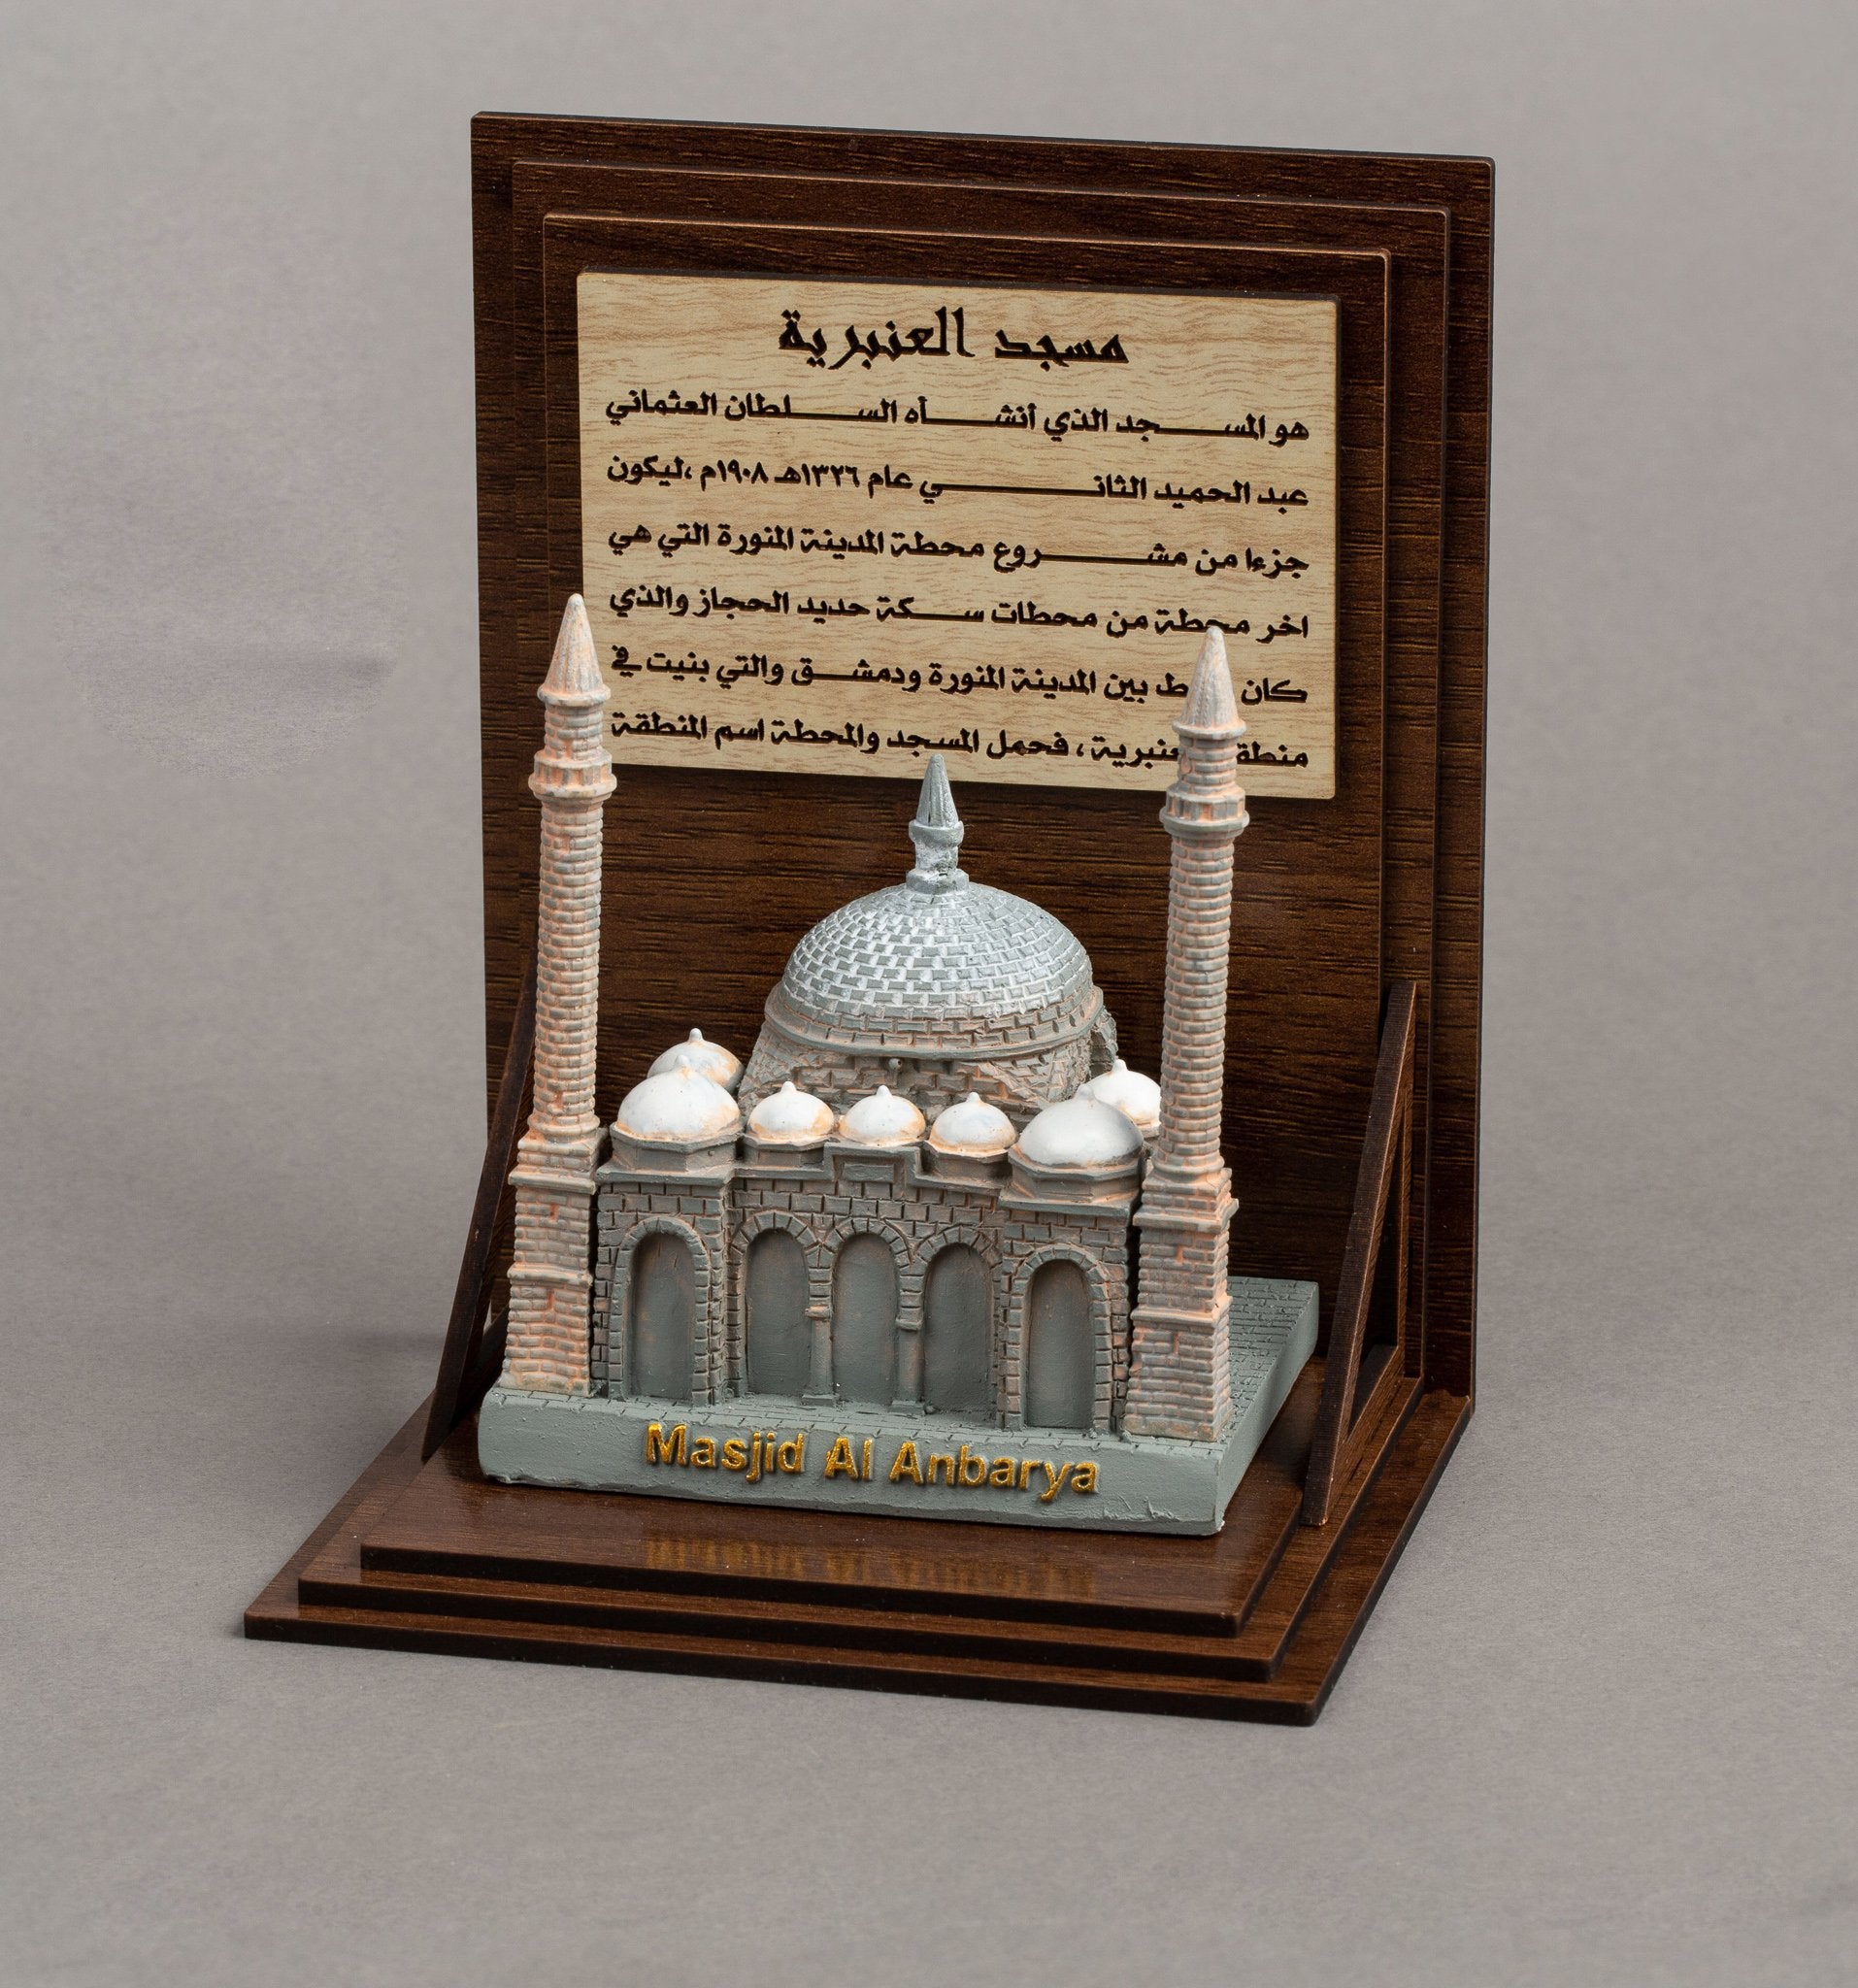 مسجد العنبرية
هو المسجد الذي أنشأه السلطان العثماني
عبد الحميد الثاني عام ١٣٢٦هـ ١٩٠٨م ،ليكون
جزءا من مشروع محطة المدينة المنورة التي هي
اخر محطة من محطات سكة حديد الحجاز والذي
كان بين المدينة المنورة ودمشق والتي بنيت في
فحمل المسجد والمحطة اسم المنطقة
Masjid Al Anbarya